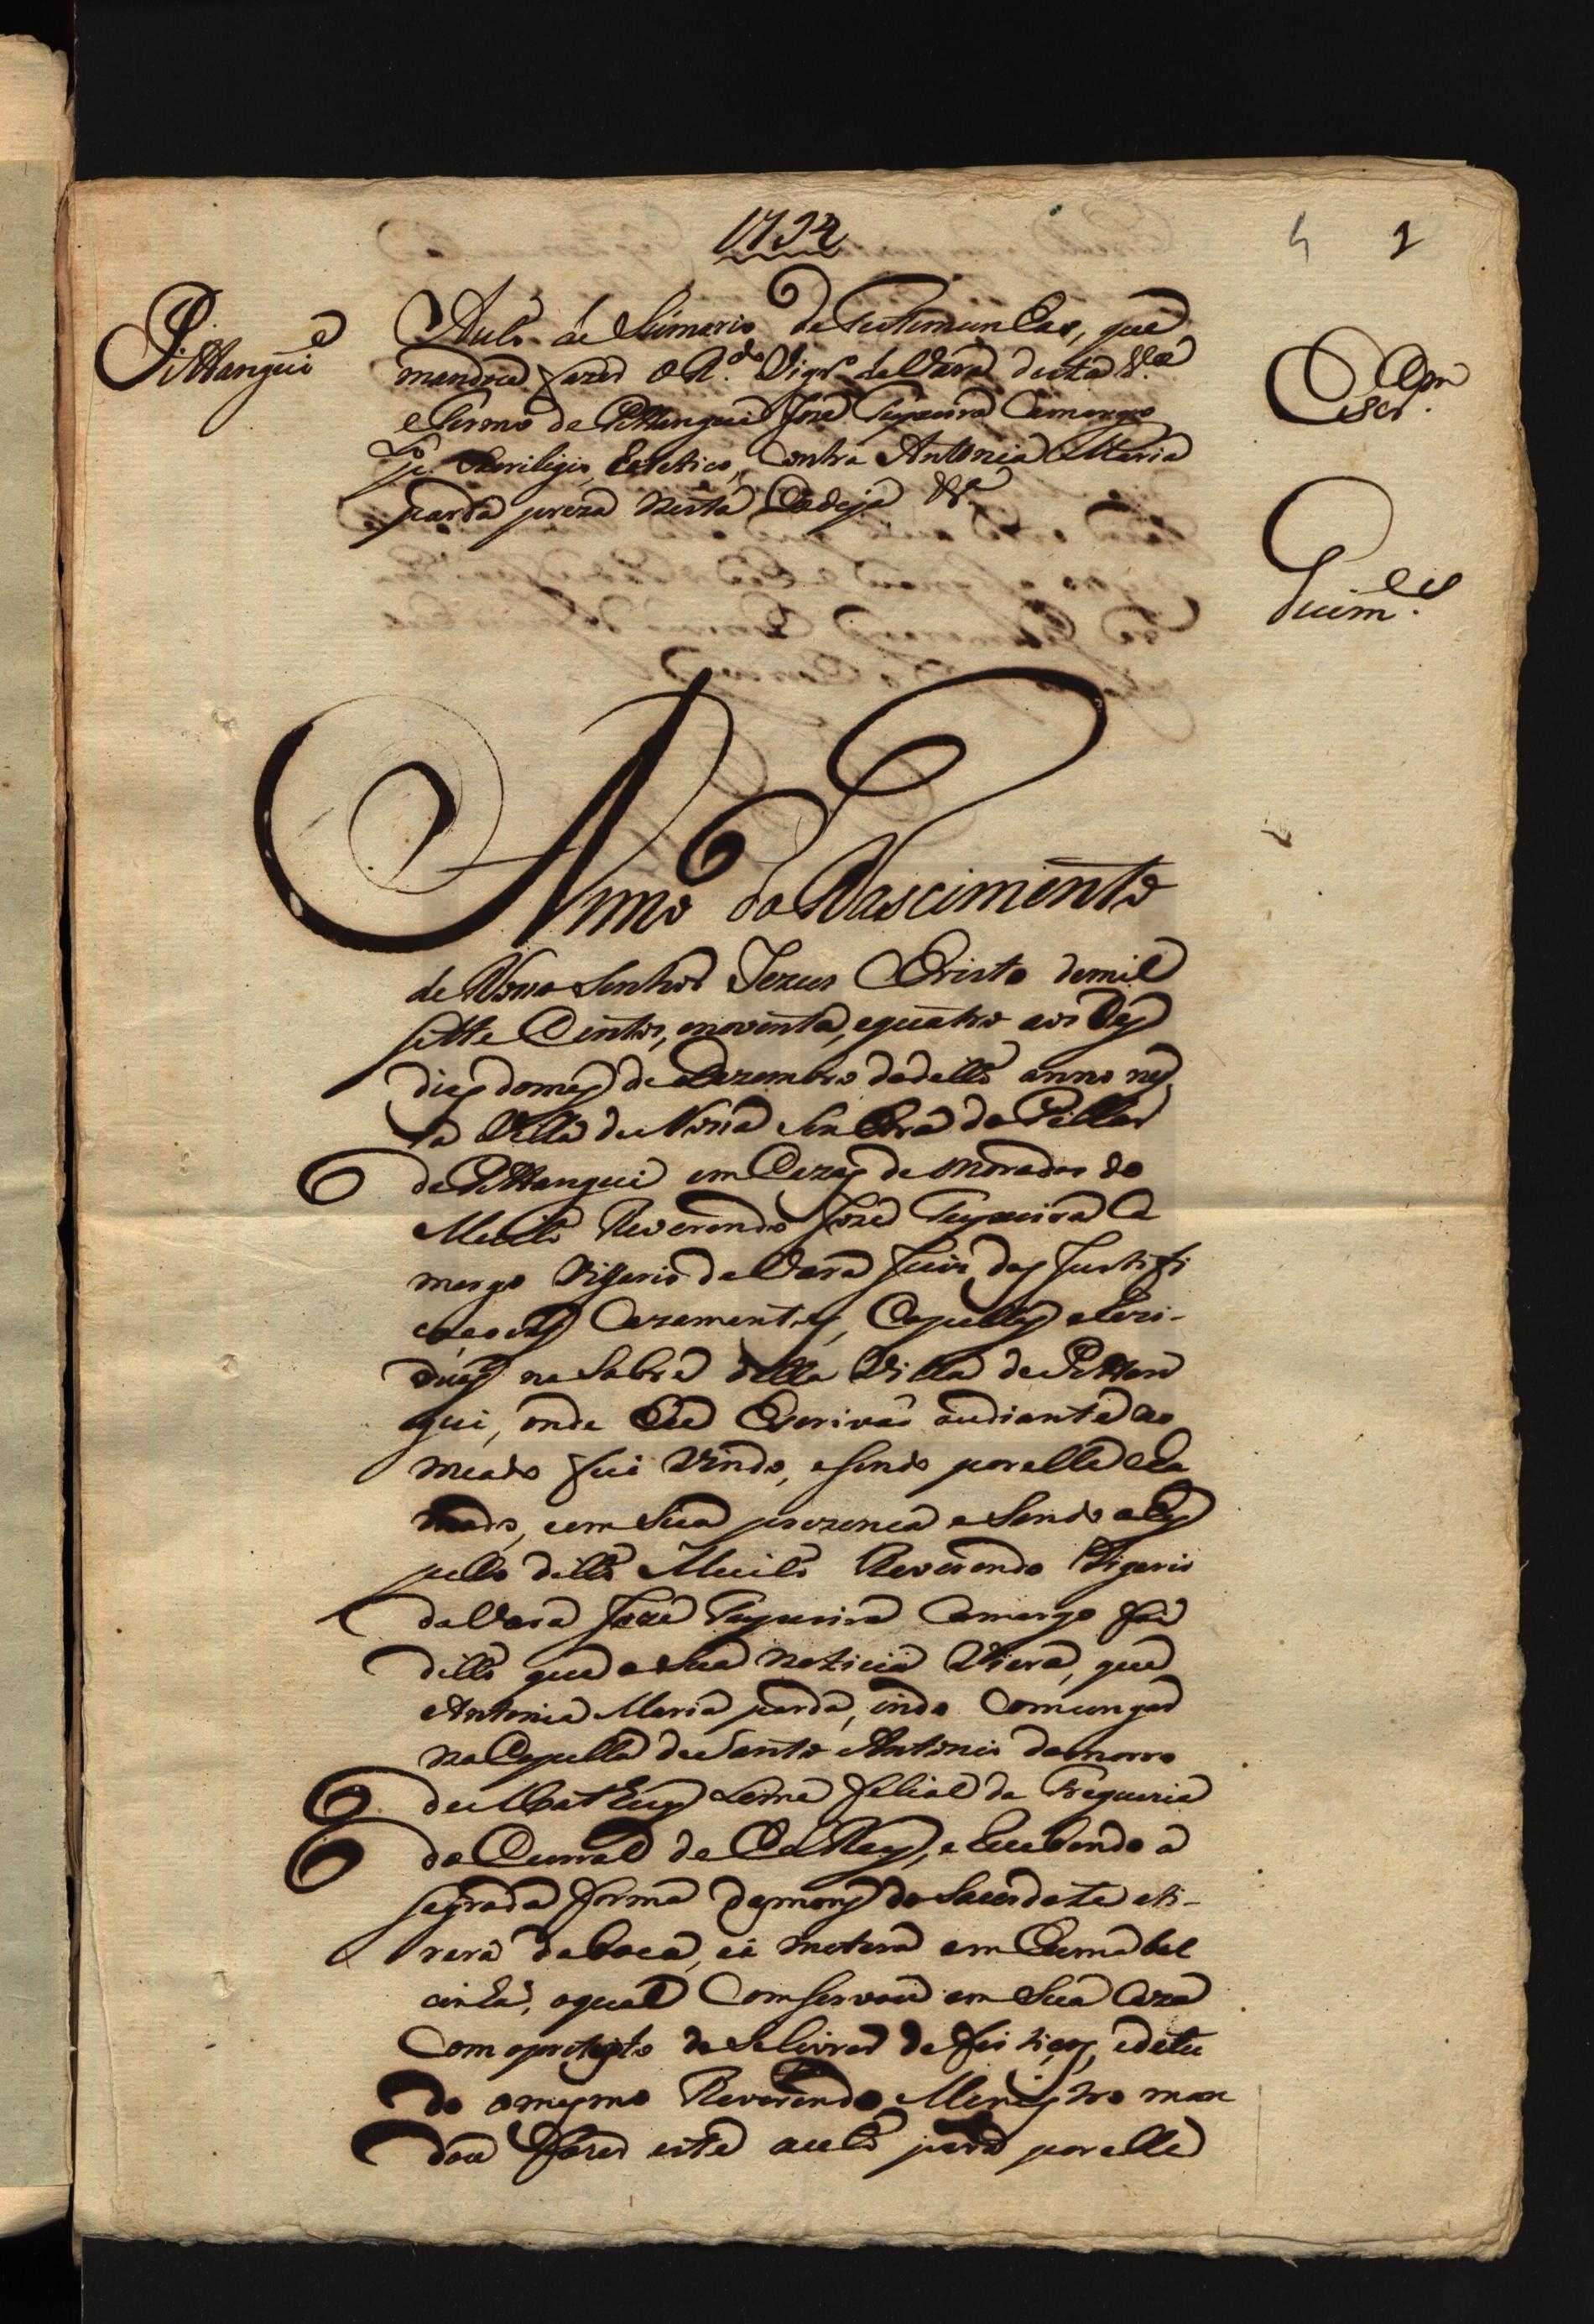 1794
4 1
Pittangui
Auto de Sumario de Testemunhas, que
mandou fazer o R.do Vigr.o da Vara desta V.a
e Termo de Pittangui Jozé Teyxeira Camargo
Sacrilegio, Eretico, Contra Antonia Maria
parda preza nesta Cadeja &a
Escr.am
Guim.es
Anno do Nascimento
de Nosso Senhor Jezus Christo demil
sette Centos, enoventa, equatro aos Des
dias domes de Dezembro doditto anno nes
ta Villa de Nossa Senhora do Pillar
de Pittangui em Cazas de moradas do
Muito Reverendo Jozé Teyxeira Ca
margo Vigario da Vara Juiz das Justifi
caçoens Cazamentos, Capellas e Rezi-
duos na sobre ditta Villa de Pittan
gui, onde Eu Escrivaõ audiante no
meado fui vindo, esendo por elle cha
mado, em sua prezenca e Sendo ahy
pello ditto Muito Reverendo Vigario
da Vara Jozé Teyxeira Camargo foi
ditto que a sua noticia viera, que
Antonia Maria parda, indo Comungar
na Capella de Santo Antonio do morro
de Matheus Leme filial da Freguezia
do Curral de El Rey, e Recebendo a
sagrada forma das mons do Sacerdote ati-
rara da boca, e a metera em huma bol
cinha, aqual Comservou em sua Caza
Com opretexto de se livrar de feitiços, e detu
do omesmo Reverendo Menistro man
dou fazer este auto para por elle